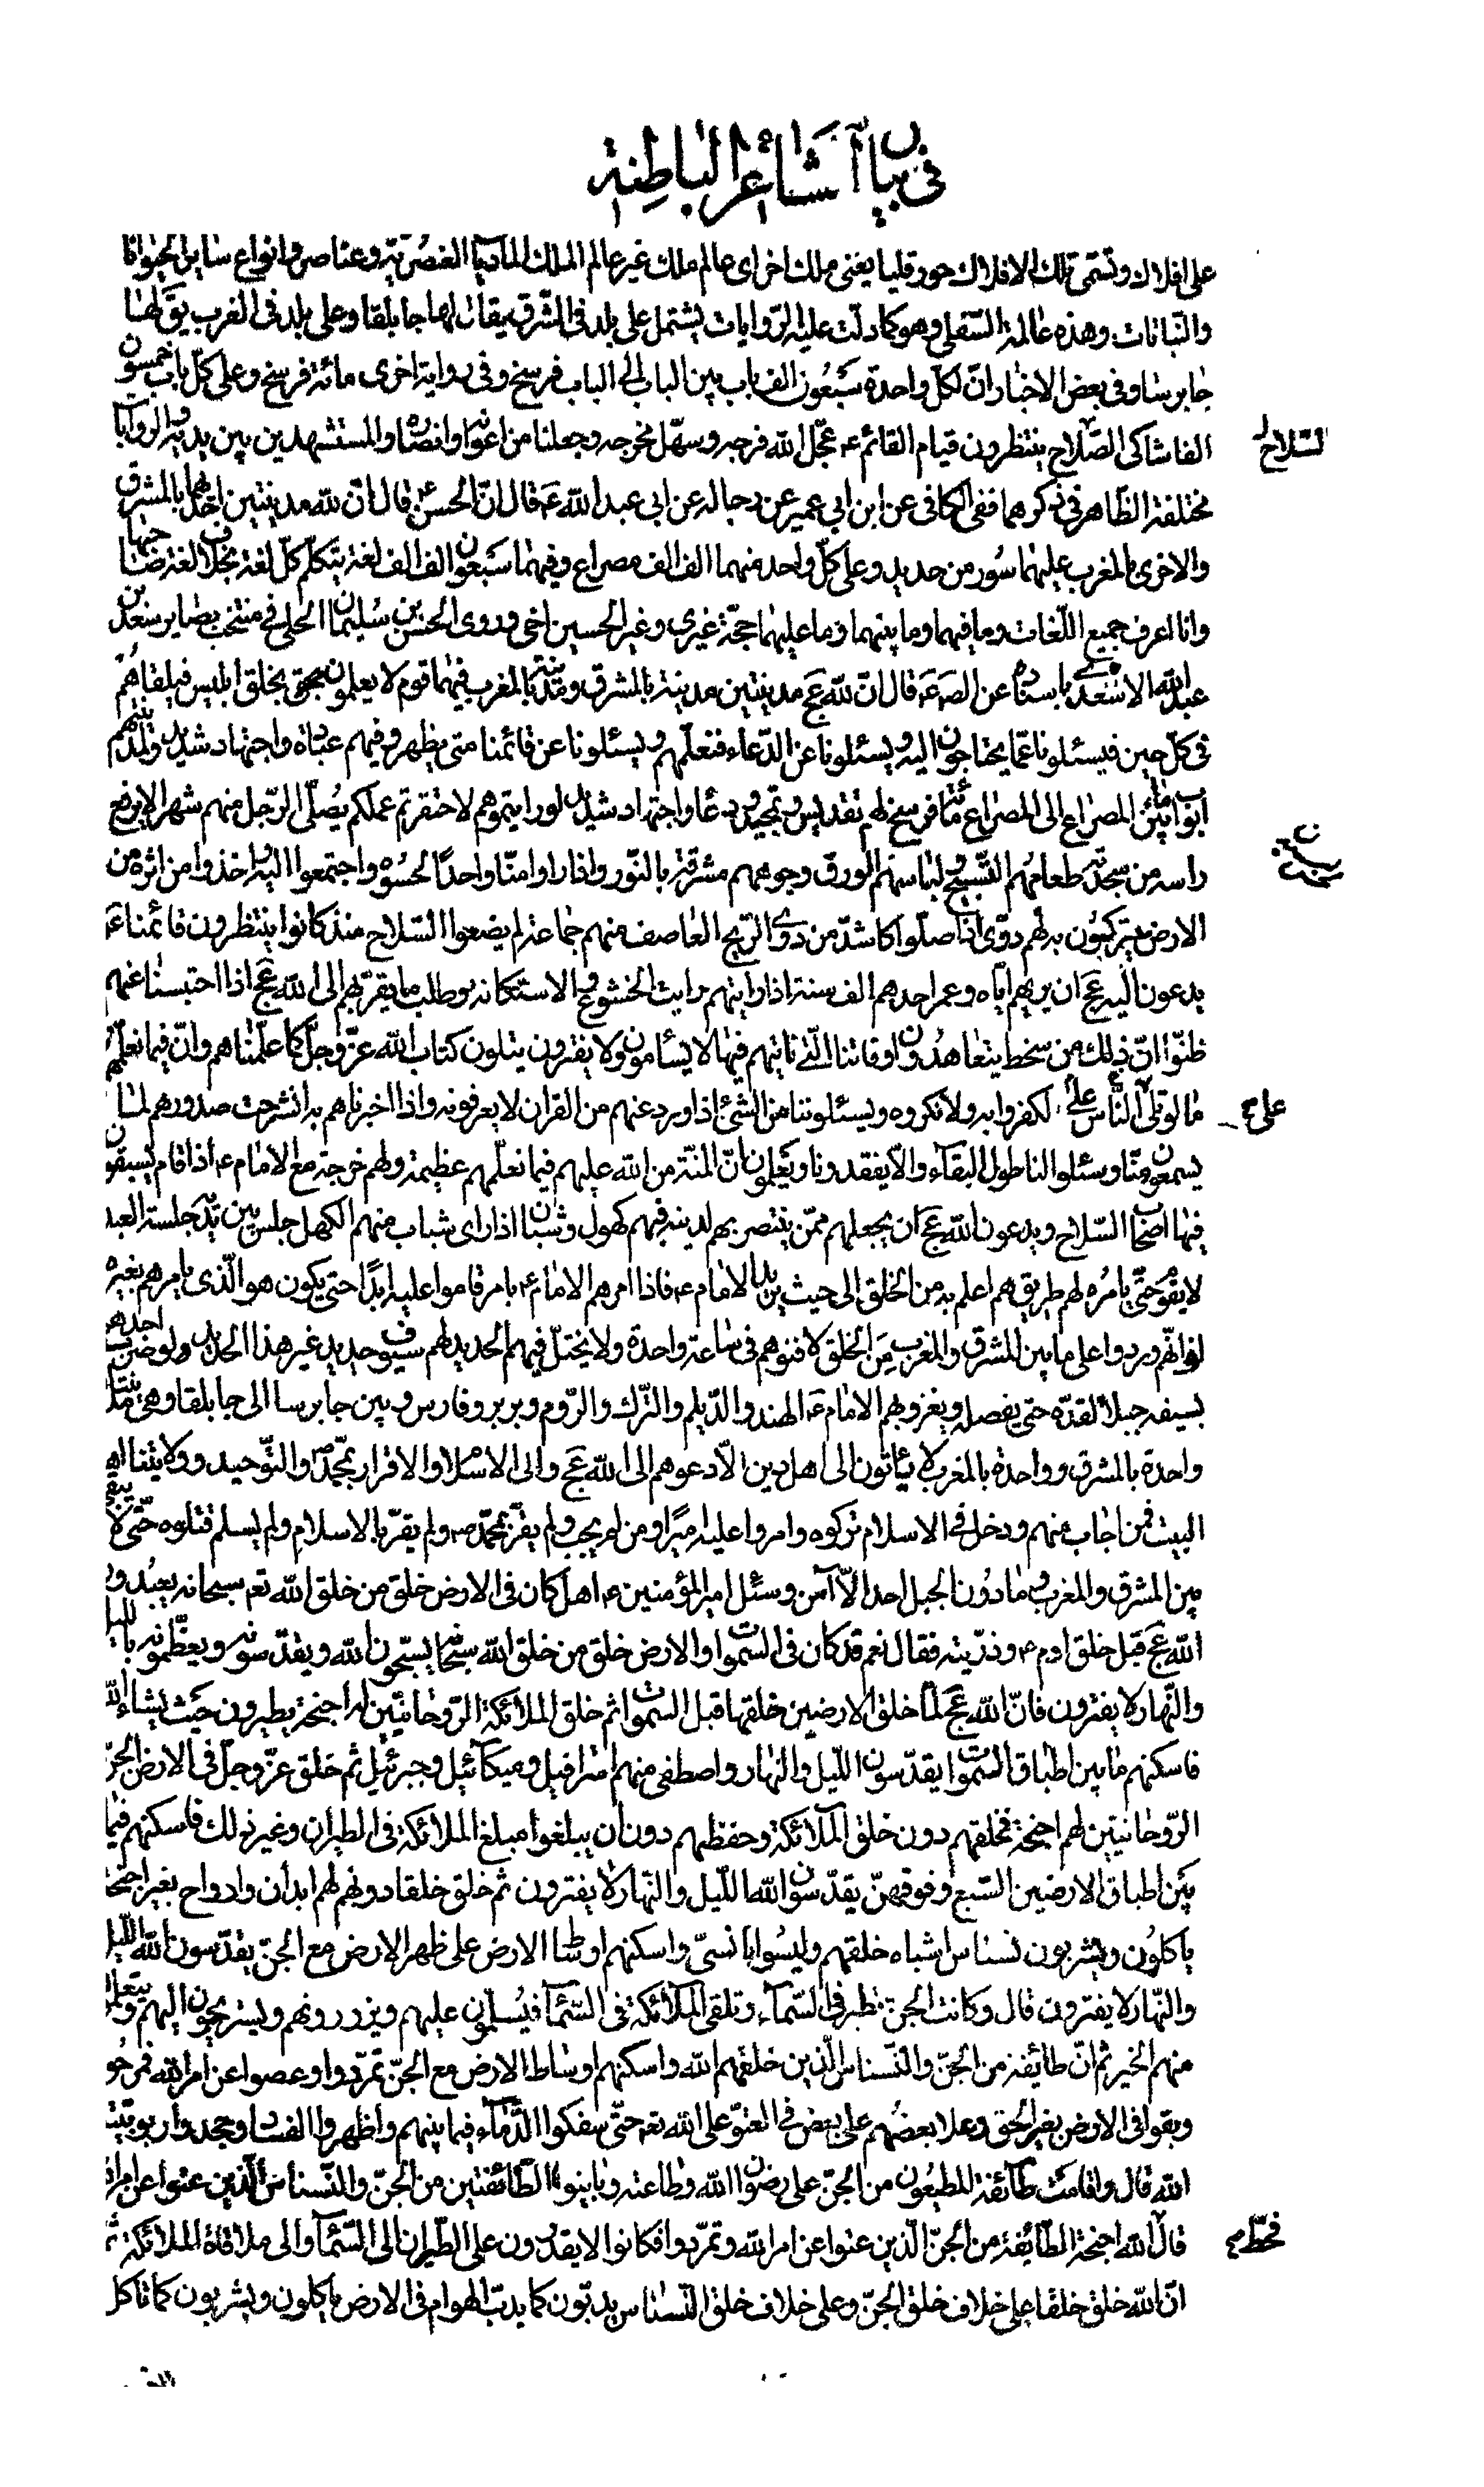 في بيان المشاعر الباطنة
على افلاك وتسمى تلك الافلاك حور قليا يعنى ملك اخر اى عالم ملك غير عالم الملك المادية العنصرية وعناصر وانواع ساير الحيوانات
والنباتات وهذه عالمه السفلى وهو كما دلت عليه الروايات يشتمل على بلد فى الشرق يقال لها جابلقا وعلى بلد فى الغرب يق لها
جابرسا وفى بعض الاخبار ان لكل واحدة سبعون الف باب بين الباب الى الباب فرسخ وفى رواية اخرى مائة فرسخ وعلى كل باب خمسون
الفا شاكى الصلاح ينتظرون قيام القائم ع عجل الله فرجه وسهل مخرجه وجعلنا من اعوانه وانصاره والمستشهدين بين يديه والروايات
السلاح
مختلفة الظاهر فى ذكرهما ففى الكافى عن ابن ابي عمير عن رجاله عن ابى عبد الله ع قال ان الحسن ع قال ان لله مدينتين احديهما بالمشرق
والاخرى بالمغرب عليهما سور من حديد وعلى كل واحد منهما الف الف مصراع وفيهما سبعون الف الف لغة يتكلم كل لغة بخلاف لغة صاحبها
وانا اعرف جميع اللغات وما فيهما وما بينهما وما عليهما حجة غيرى وغير الحسين اخى وروى الحسن بن سليمان الحلى فى منتخب بصاير سعد بن
عبد الله الاشعرى باسناده عن الص ع قال ان لله عج مدينتين مدينة بالمشرق ومدينة بالمغرب فيهما قوم لا يعلمون بخلق ابليس فيلقاهم
فى كل حين فيسئلونا عما يحتاجون اليه ويسئلونا عن الدعاء فنعلمهم ويسئلونا عن قائمنا متى يظهر وفيهم عبادة واجتهاد شديد ولمدينتهم
ابواب ما بين المصراع الى المصراع مائة فرسخ لهم تقديس وتمجيد ودعا واجتهاد شديد لو رايتموهم لاحتقرتم عملكم يصلى الرجل منهم شهرا لا يرفع
راسه من سجدته طعامهم التسبيح ولباسهم الورق ووجوههم مشرقة بالنور واذا راوا منا واحدا لحسوه واجتمعوا اليه واخذوا من اثره من
الارض يتبركون به لهم دوى اذا صلوا كاشد من دوى الريح العاصف منهم جماعة لم يضعوا السلاح منذ كانوا ينتظرون قائمنا ع
يدعون اليه عج ان يريهم اياه وعمر احدهم الف سنة اذا رايتهم رايت الخشوع والاستكانة وطلب ما يقربهم الى الله عج اذا احتبسنا عنهم
ظنوا ان ذلك من سخط يتعاهدون اوقاتنا التى ناتيهم فيها لا يسامون ولا يفترون يتلون كتاب الله عز وجل كما علمناهم وان فيما نعلمهم
ما لو تلى على الناس لكفروا به ولانكروه ويسئلوننا من الشئ اذا ورد عنهم من القران لا يعرفونه واذا اخبرناهم به انشرحت صدورهم لما
على ع
يسمعون منا وسئلوا لنا طول البقاء والا يفقدونا ويعلمون ان المنة من الله عليهم فيما نعلمهم عظيمة ولهم خرجة مع الامام ع اذا قام يسبقون
فيها اصحاب السلاح ويدعون الله عج ان يجعلهم ممن ينتصر بهم لدينه فيهم كهول وشبان اذا راى شباب منهم الكهل جلس بين يديه جلسة العبد
لا يقوم حتى يامره لهم طريق هم اعلم به من الخلق الى حيث يريد الامام ع فاذا امرهم الامام ع بامر قاموا عليه ابدا حتى يكون هو الذى يامرهم بغيره
لو انهم وردوا على ما بين المشرق والمغرب من الخلق لافنوهم فى ساعة واحدة ولا يختل فيهم الحديد لهم سيوف حديد غير هذا الحديد ولو ضرب احدهم
بسيفه جبلا لقده حتى يفصله ويغزو بهم الامام ع الهند والديلم والترك والروم وبربر وفارس وبين جابرسا الى جابلقا وهى مدينتان
واحدة بالمشرق وواحدة بالمغرب لا ياتون الى اهل دين الا دعوهم الى الله عج والى الاسلام والاقرار بمحمد ص والتوحيد وولايتنا اهل
البيت فمن اجاب منهم ودخل فى الاسلام تركوه وامروا عليه اميرا ومن لم يجب ولم يقر بمحمد ص ولم يقر بالاسلام ولم يسلم قتلوه حتى لا يبقى
بين المشرق والمغرب وما دون الجبل احد الا آمن وسئل امير المؤمنين ع اهل كان فى الارض خلق من خلق الله تعه سبحانه يعبدون
الله عج قبل خلق ادم ع وذريته فقال نعم قد كان فى السموات والارض خلق من خلق الله سبحانه يسبحون الله ويقدسونه ويعظمونه بالليل
والنهار لا يفترون فان الله عج لما خلق الارضين خلقها قبل السموات ثم خلق الملائكة الروحانيين لها اجنحة يطيرون حيث يشاء الله
فاسكنهم ما بين اطباق السموات يقدسون الليل والنهار واصطفى منهم اسرافيل وميكائيل وجبرئيل ثم خلق عز وجل فى الارض الجن
الروحانيين لهم اجنحة فخلقهم دون خلق الملائكة وحفظهم دون ان يبلغوا مبلغ الملائكة فى الطيران وغير ذلك فاسكنهم فيما
بين اطباق الارضين السبع وفوقهن يقدسون الله الليل والنهار لا يفترون ثم خلق خلقا دونهم لهم ابدان وارواح بغير اجنحة
ياكلون ويشربون نسناس اشباه خلقهم وليسوا بانسى واسكنهم اوساط الارض على ظهر الارض مع الجن يقدسون الله الليل
والنهار لا يفترون قال وكانت الجن تطير فى السماء وتلقى الملائكة فى السماء فيسلمون عليهم ويزورونهم ويستريحون اليهم ويتعلمون
منهم الخير ثم ان طائفة من الجن والنسناس الذين خلقهم الله واسكنهم اوساط الارض مع الجن تمردوا وعصوا عن امر الله فمرحوا
وبغوا فى الارض بغير الحق وعلا بعضهم على بعض فى العتو على الله تعه حتى سفكوا الدماء فيما بينهم واظهروا الفساد وجحدوا ربوبيت
الله قال واقامت طائفة المطيعون من الجن على رضوان الله وطاعته وباينوا الطائفتين من الجن والنسناس الذين عتوا عن امر الله
قال الله اجنحة الطائفة من الجن الذين عتوا عن امر الله وتمردوا فكانوا لا يقدرون على الطيران الى السماء والى ملاقاة الملائكة
فحط م
ان الله خلق خلقا على خلاف خلق الجن وعلى خلاف خلق النسناس يدبون كما يدب الهوام فى الارض ياكلون ويشربون كما تاكل